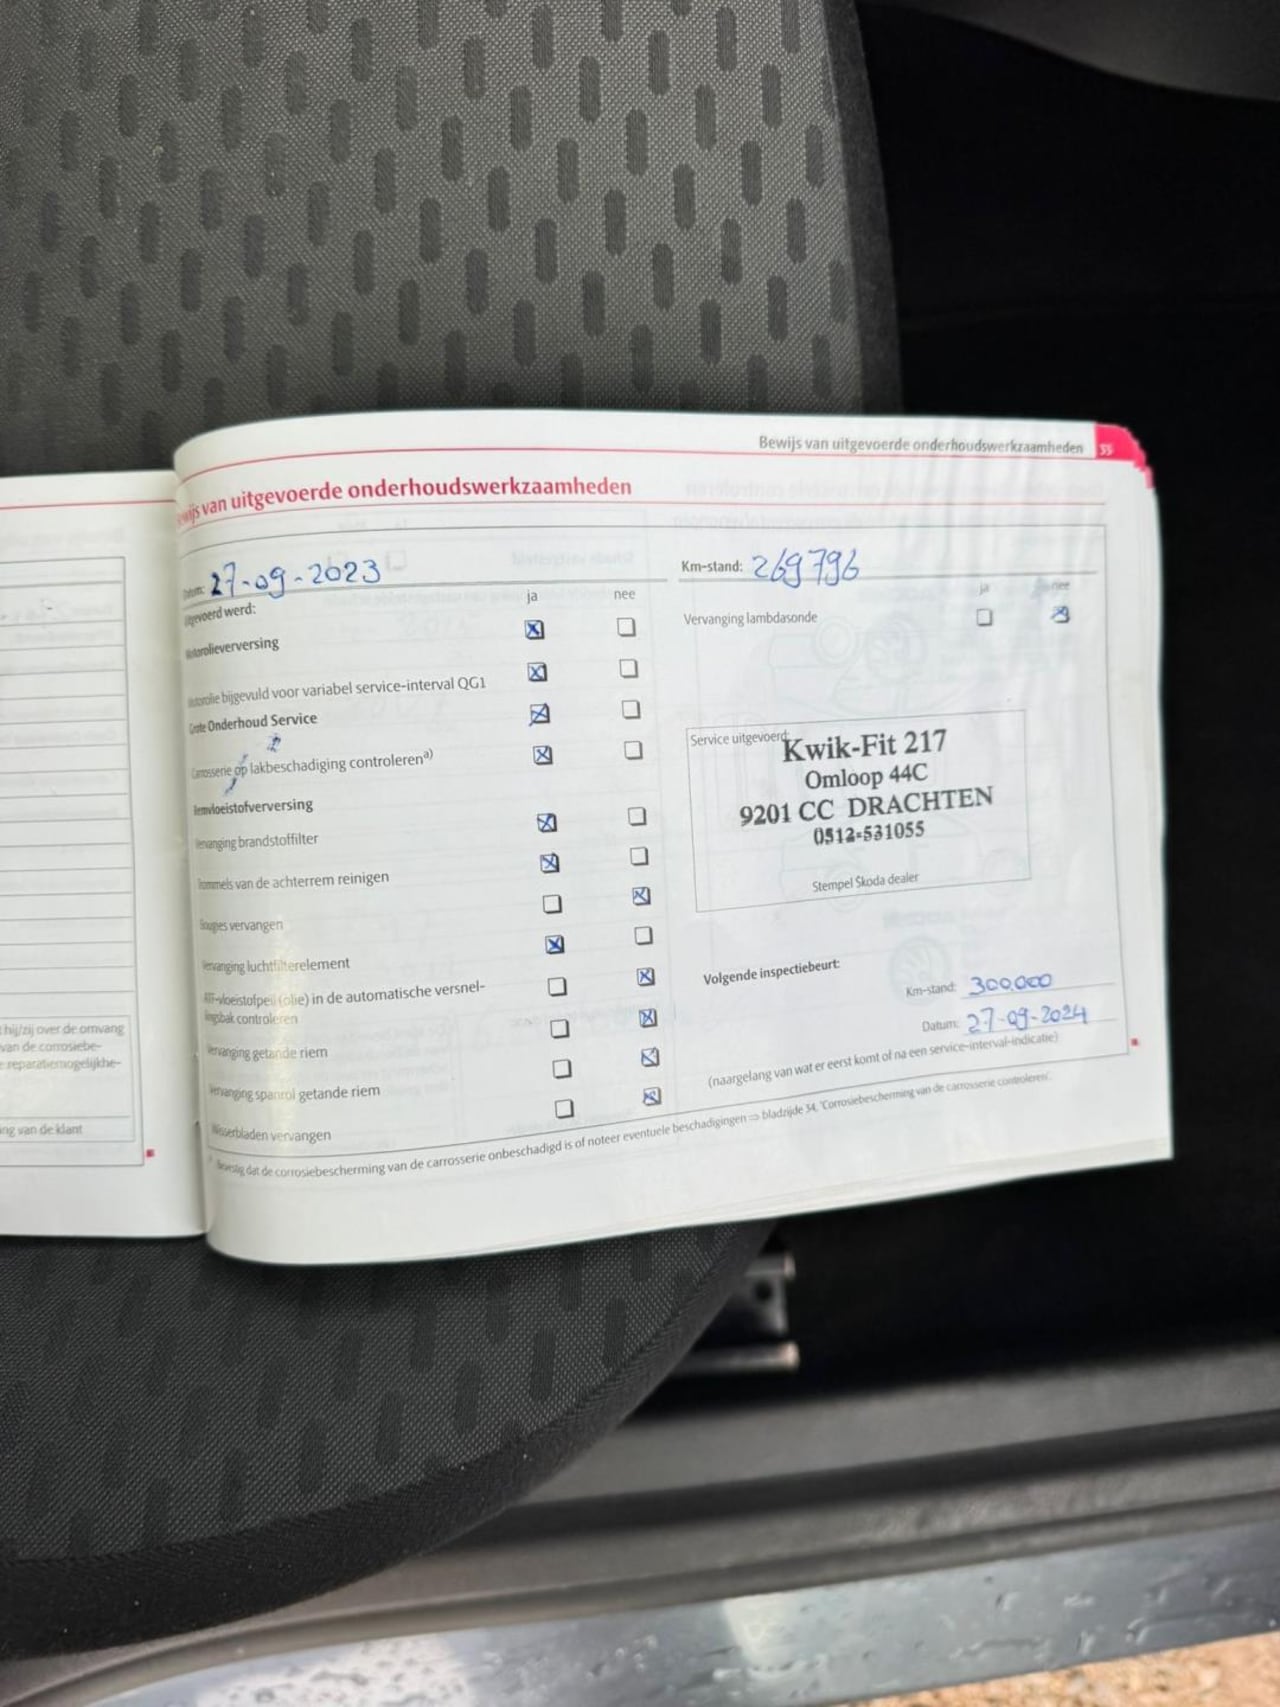 Bewijs van uitgevoerde onderhoudswerkzaamheden 55
van uitgevoerde onderhoudswerkzaamheden
27-09-2023
Km-stand: 269796
werd:
ja nee
ja nee
Motorolieverversing
Vervanging lambdasonde
Motorolie bijgevuld voor variabel service-interval QG1
Grote Onderhoud Service
Carrosserie op lakbeschadiging controleren a)
Remvloeistofverversing
Vervanging brandstoffilter
Trommels van de achterrem reinigen
Bougies vervangen
Vervanging luchtfilterelement
ATF-vloeistofpeil (olie) in de automatische versnel-
lingsbak controleren
Vervanging getande riem
Vervanging spanrol getande riem
Wisserbladen vervangen
Service uitgevoerd:
Kwik-Fit 217
Omloop 44C
9201 CC DRACHTEN
0512-531055
Stempel Škoda dealer
Volgende inspectiebeurt:
Km-stand: 300.000
Datum: 27-09-2024
(naargelang van wat er eerst komt of na een service-interval-indicatie)
dat de corrosiebescherming van de carrosserie onbeschadigd is of noteer eventuele beschadigingen ⇒ bladzijde 34, 'Corrosiebescherming van de carrosserie controleren'.
hij/zij over de omvang
van de corrosiebe-
reparatiemogelijkhe-
van de klant